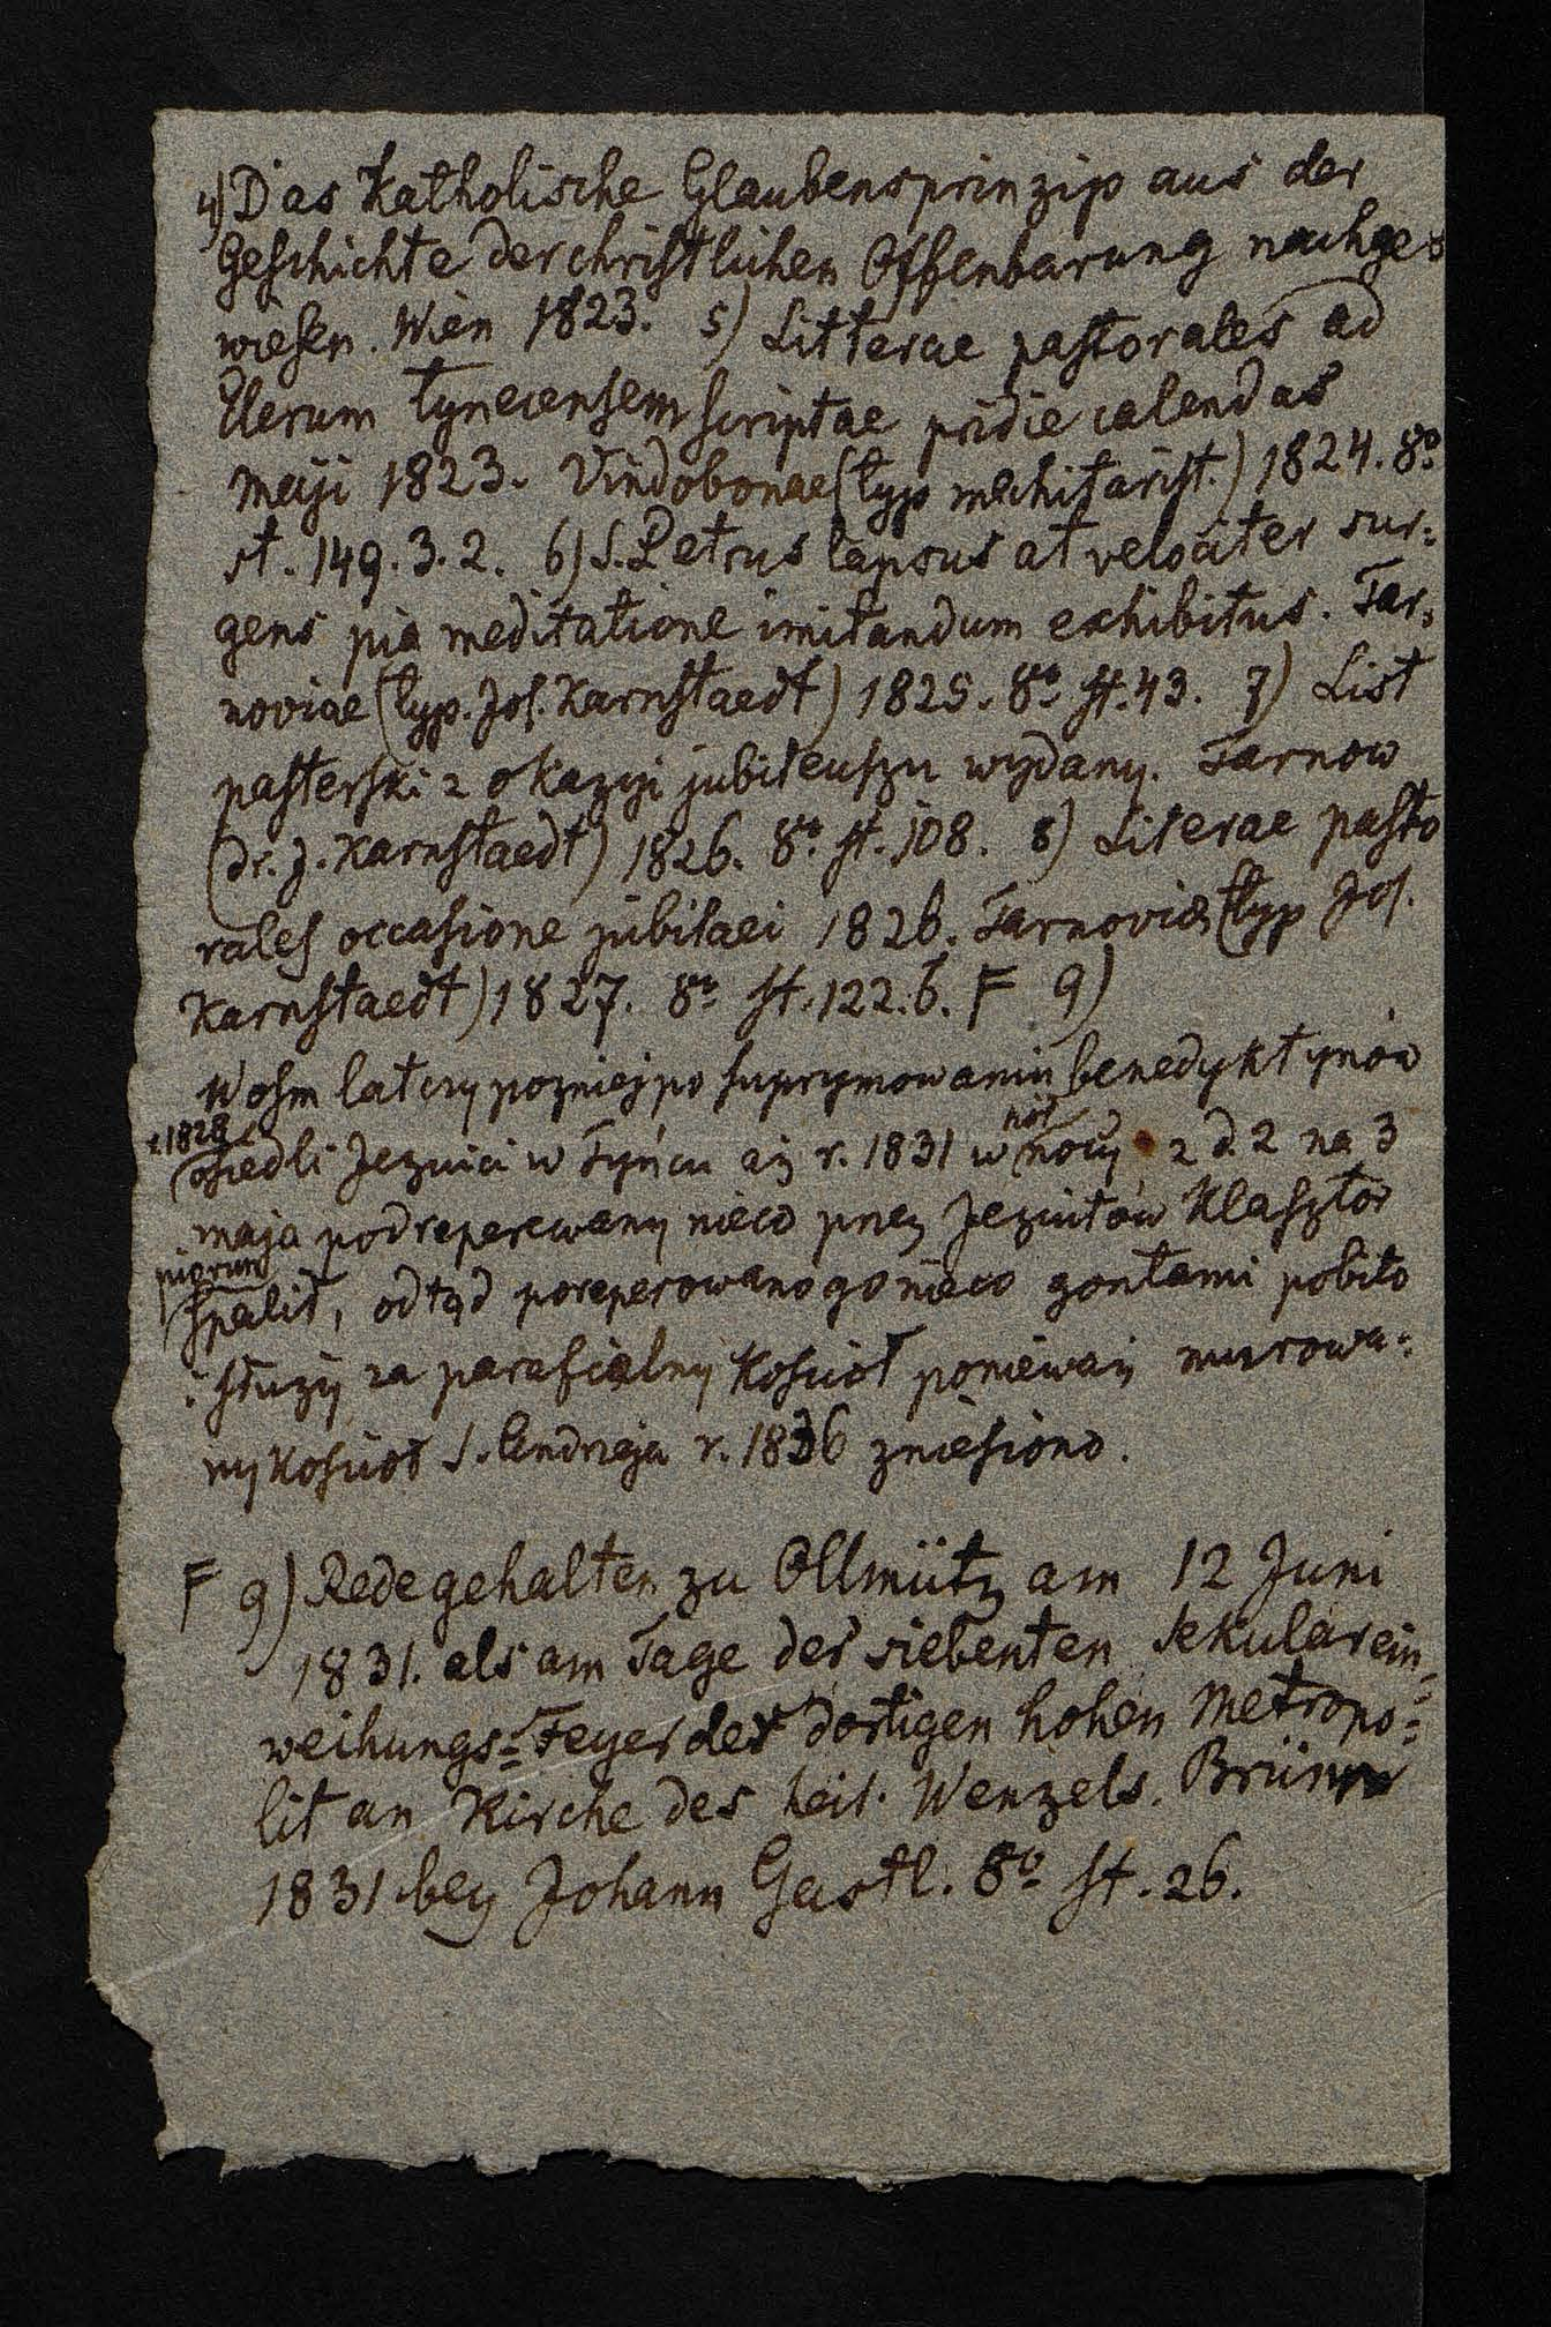 4) Das Katholische Glaubensprinzip aus der
Geschichte der christlichen Offenbarung nachge=
wiesen. Wien 1823. 5) Litterae pastorales ad
Clerum tynecensem scriptae pridie calendas
Maji 1823. Vindobonae (typ mechitarist.) 1824. 8º
st. 149. 3. 2. 6) S. Petrus lapsus at velociter sur=
gens pia meditatione imitandum exhibitus. Tar=
noviae (typ. Jos. Karnstaedt) 1825. 8º st. 43. 7) List
pasterski z okazyi jubileuszu wydany. Tarnow
(dr. J. Karnstaedt) 1826. 8º st. 108. 8) Literae pasto
rales occasione jubilaei 1826. Tarnoviae (typ Jos.
Karnstaedt) 1827. 8º st. 122. 6. F 9)
W osm lat czy pozniej po suprymowaniu benedyktynów
r. 1828
osiedli Jezuici w Tyńcu aż r. 1831 w nocy z d. 2 na 3
maja podreperewany nieco przez Jezuitów Klasztor
piorun
spalił, odtąd poreperowano go nieco gontami pobito
i służy za parafialny Kościoł ponieważ murowa=
ny Kościoł S. Andrzeja r. 1836 zniesiono.
F 9) Rede gehalten zu Ollmütz am 12 Juni
1831. als am Tage der siebenten Sekularein=
weihungs=Feyer der dortigen hohen Metropo=
litan Kirche des heil. Wenzels. Brünn
1831 bey Johann Gastl. 8º st. 26.